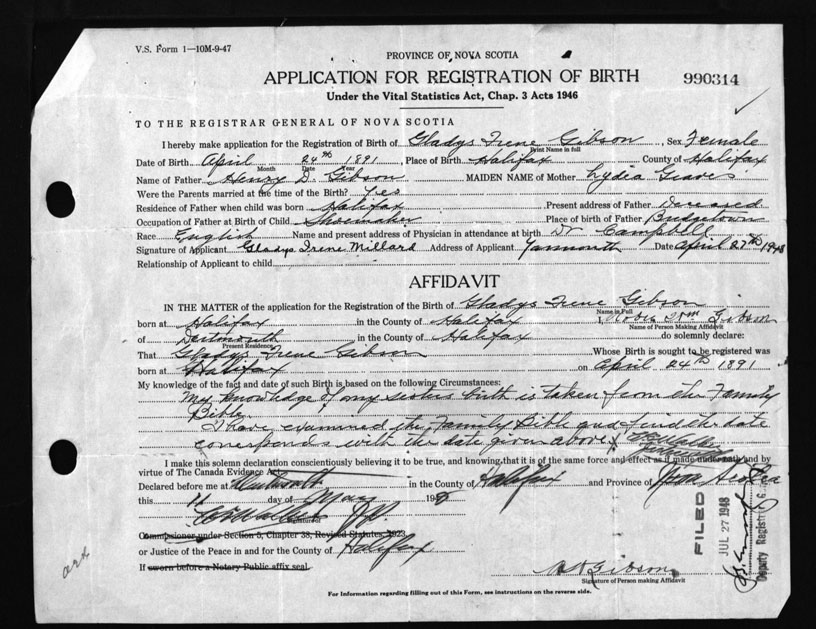 V.S. Form 1—10M-9-47
PROVINCE OF NOVA SCOTIA
APPLICATION FOR REGISTRATION OF BIRTH
990314
Under the Vital Statistics Act, Chap. 3 Acts 1946
TO THE REGISTRAR GENERAL OF NOVA SCOTIA
I hereby make application for the Registration of Birth of Gladys Irene Gibson, Sex Female
Print Name in full
Date of Birth April 24th 1891, Place of Birth Halifax County of Halifax
Month Date Year
Name of Father Henry D. Gibson MAIDEN NAME of Mother Lydia Graves
Were the Parents married at the time of the Birth? Yes
Residence of Father when child was born Halifax Present address of Father Deceased
Occupation of Father at Birth of Child Shoemaker Place of birth of Father Bridgetown
Race English Name and present address of Physician in attendance at birth Dr Campbell
Signature of Applicant Gladys Irene Millard Address of Applicant Yarmouth Date April 27th 1948
Relationship of Applicant to child
AFFIDAVIT
IN THE MATTER of the application for the Registration of the Birth of Gladys Irene Gibson
Name in Full
born at Halifax in the County of Halifax I, Gibson
Name of Person Making Affidavit
of Dartmouth in the County of Halifax do solemnly declare:
Present Residence
That Gladys Irene Gibson Whose Birth is sought to be registered was
born at Halifax on April 24th 1891
My knowledge of the fact and date of such Birth is based on the following Circumstances:
My knowledge of my sisters birth is taken from the Family
Bible.
I have examined the Family Bible and find the date
corresponds with the date given above
I make this solemn declaration conscientiously believing it to be true, and knowing that it is of the same force and effect as if made under oath and by
virtue of The Canada Evidence Act.
Declared before me at Dartmouth in the County of Halifax and Province of Nova Scotia
this 11 day of May 1948
Signature of
Commissioner under Section 5, Chapter 38, Revised Statutes, 1923
or Justice of the Peace in and for the County of Halifax
If sworn before a Notary Public affix seal.
Gibson
Signature of Person making Affidavit
For Information regarding filling out of this Form, see instructions on the reverse side.
FILED
JUL 27 1948
Deputy Registrar G.